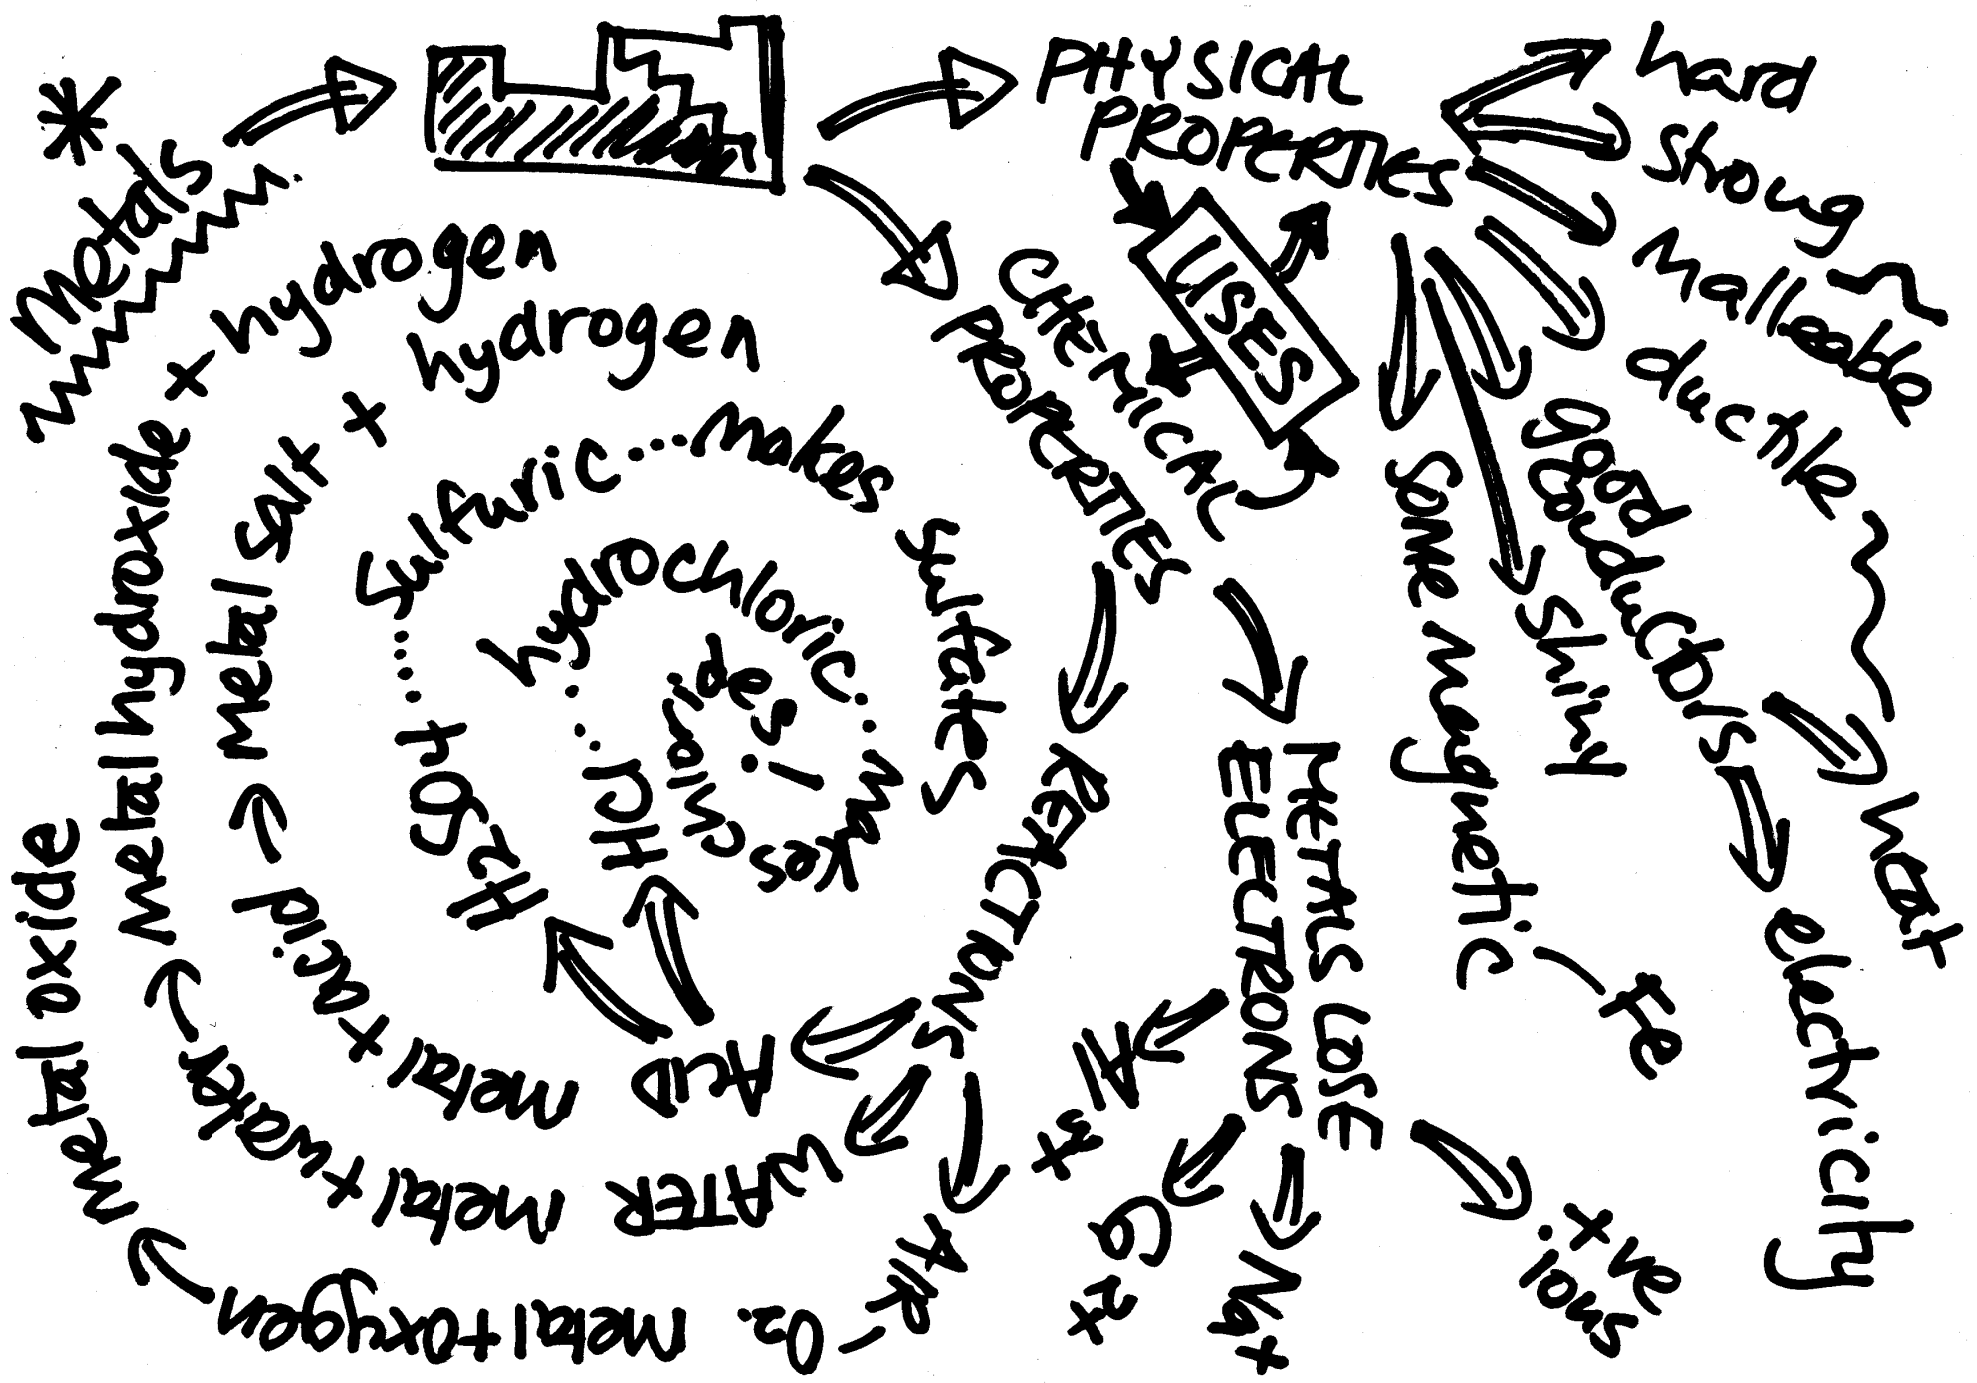 * Metals
PHYSICAL
PROPERTIES
hard
strong
Malleable
ductile
good
conductors
heat
electricity
shiny
some magnetic
Fe
USES
CHEMICAL
PROPERTIES
METALS LOSE
ELECTRONS
+ve
ions
Na+
Ca2+
Al3+
REACTIONS
AIR - O2. metal + oxygen → metal oxide
WATER metal + water → metal hydroxide + hydrogen
ACID metal + acid → metal salt + hydrogen
H2SO4 ..... sulfuric ... makes sulfates
HCl ... hydrochloric ... makes chlorides!